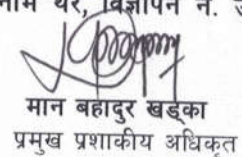 नाम थर, विज्ञापन नं.
मान बहादुर खड्का
प्रमुख प्रशाकीय अधिकृत